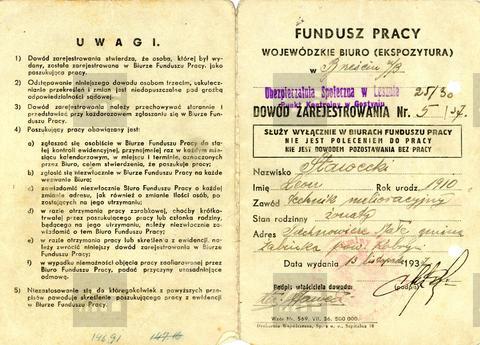 UWAGI.
1) Dowód zarejestrowania stwierdza, że osoba, której był wy-
dany, została zarejestrowana w Biurze Funduszu Pracy, jako
poszukująca pracy.
2) Odstępowanie niniejszego dowodu osobom trzecim, uskutecz-
nianie przekreśleń i zmian jest niedopuszczalne pod groźbą
odpowiedzialności sądowej.
3) Dowód zarejestrowania należy przechowywać starannie i
przedstawiać przy każdorazowem zgłaszaniu się w Biurze Fun-
duszu Pracy.
4) Poszukujący pracy obowiązany jest:
a) zgłaszać się osobiście w Biurze Funduszu Pracy do sta-
łej kontroli ewidencyjnej, przynajmniej raz w każdym mie-
siącu kalendarzowym, w miejscu i terminie, oznaczonych
przez Biuro, celem stwierdzenia, że poszukuje pracy;
b) zgłosić się niezwłocznie w Biurze Funduszu Pracy na każde
wezwanie Biura;
c) zawiadomić niezwłocznie Biuro Funduszu Pracy o każdej
zmianie adresu, jak również o zmianie ilości osób, pozo-
stających na jego utrzymaniu;
d) w razie otrzymania pracy zarobkowej, choćby krótko-
trwałej przez poszukującego pracy lub członka rodziny,
będącego na jego utrzymaniu, winien niezwłocznie za-
wiadomić o tem Biuro Funduszu Pracy;
e) w razie otrzymania pracy lub skreślenia z ewidencji, nale-
ży zwrócić niezwłocznie niniejszy dowód zarejestrowania w Biurze
Funduszu Pracy;
f) w wypadku niemożności objęcia pracy zaofiarowanej przez
Biuro Funduszu Pracy, podać przyczyny unasadniające
odmowę.
5) Niezastosowanie się do któregokolwiek z powyższych prze-
pisów powoduje skreślenie poszukującego pracy z ewidencji
w Biurze Funduszu Pracy.
146.91
FUNDUSZ PRACY
WOJEWÓDZKIE BIURO (EKSPOZYTURA)
w Brześciu n/B
Ubezpieczalnia Społeczna w Lesznie
Punkt Kontrolny w Gostyniu
25/30
DOWÓD ZAREJESTROWANIA Nr. 5/37.
SŁUŻY WYŁĄCZNIE W BIURACH FUNDUSZU PRACY
NIE JEST POLECENIEM DO PRACY
NIE JEST DOWODEM POZOSTAWANIA BEZ PRACY
Nazwisko Starocki
Imię Leon Rok urodz. 1910
Zawód technik melioracyjny
Stan rodzinny żonaty
Adres gmina
Żabinka pow. Kobryń
Data wydania 13 listopada 1937
Podpis właściciela dowodu: (podpis)
Wzór Nr. 569. VII. 36. 500.000.
Drukarnia Współczesna, Sp. z o. o., Szpitalna 10